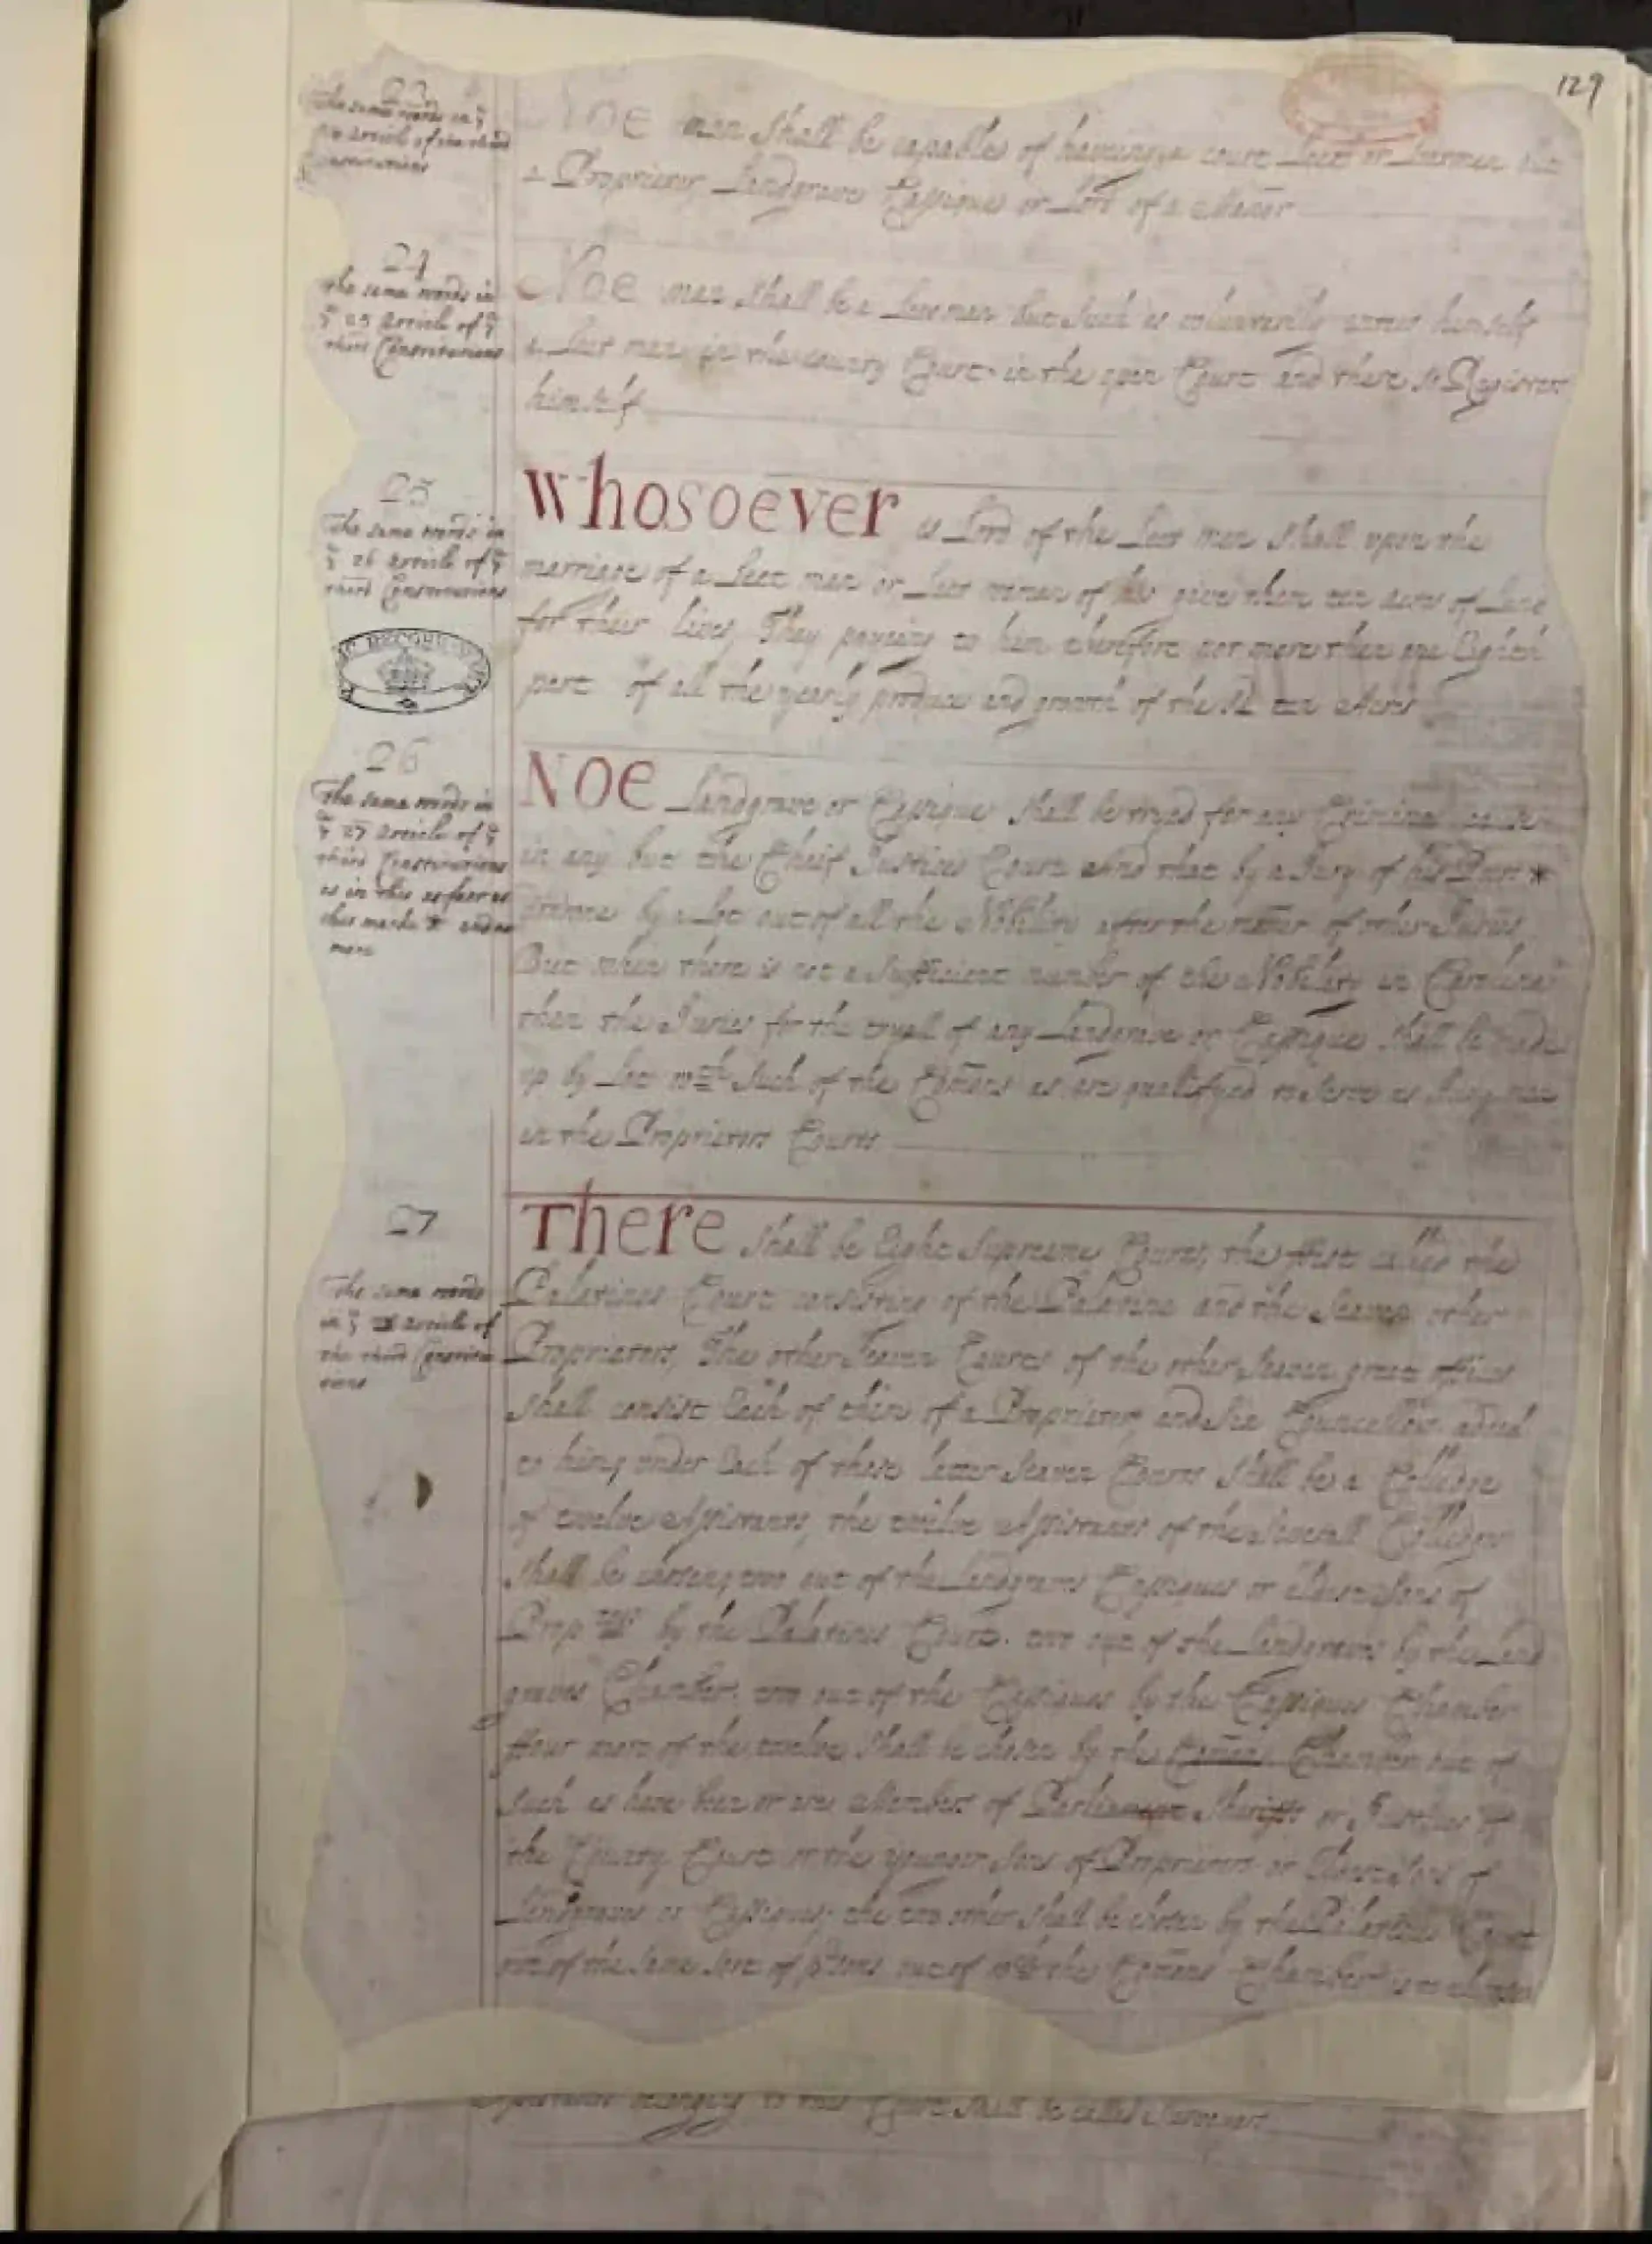 129
23
The same words in ye
article of the third
Constitutions
Noe man shall be capable of haveing a court Leet or Leetmen but
a Proprietor Landgrave Cassique or Lord of a Manor
24
The same words in
ye 25 Article of ye
third Constitutions
Noe man shall be a Leetman but such as voluntarily enter himself
a Leet man in the county Court in the open Court and there so Register
himself
25
The same words in
ye 26 Article of ye
third Constitutions
Whosoever is Lord of the Leet men shall upon the
marriage of a Leet man or Leet woman of his give them ten Acres of Land
for their lives, They payeing to him therefore not more then one Eighth
part of all the yearly produce and growth of the sd ten Acres
26
The same words in
ye 27 Article of ye
third Constitutions
as in this as farr as
this marke * and no
more
Noe Landgrave or Cassique shall be tryed for any Criminal cause
in any but the Cheif Justices Court And that by a Jury of his Peers *
by a Lot out of all the Nobility after the maner of other Juries
But when there is not a Sufficient number of the Nobility in Carolina
then the Juries for the tryall of any Landgrave or Cassique shall be made
up by Lot wth such of the Comons as are qualifyed to serve as Jury men
in the Proprietors Courts
27
The same words
in ye 28 Article of
the third Constitu
tions
There shall be Eight Supreme Courts, the first called the
Palatines Court consisting of the Palatine and the Seaven other
Proprietors, The other Seaven Courts of the other Seaven great officers
shall consist Each of them of a Proprietor and six Councellors added
to him; under Each of these latter Seaven Courts shall be a Colledge
of twelve Assistants, the twelve Assistants of the severall Colledges
shall be chosen; two out of the Landgraves Cassiques or Eldest sons of
Proptors by the Palatines Court. two out of the Landgraves by the Land
graves Chamber. two out of the Cassiques by the Cassiques Chamber
ffour more of the twelve shall be chosen by the Comons Chamber out of
such as have been or are Members of Parliament Sheriffs or Justices of
the County Court or the younger sons of Proprietors or Eldest sons of
Landgraves or Cassiques; the two other shall be chosen by the Palatines Court
out of the same sort of psons out of wch the Comons Chamber is to choose
belonging to this Court shall be called